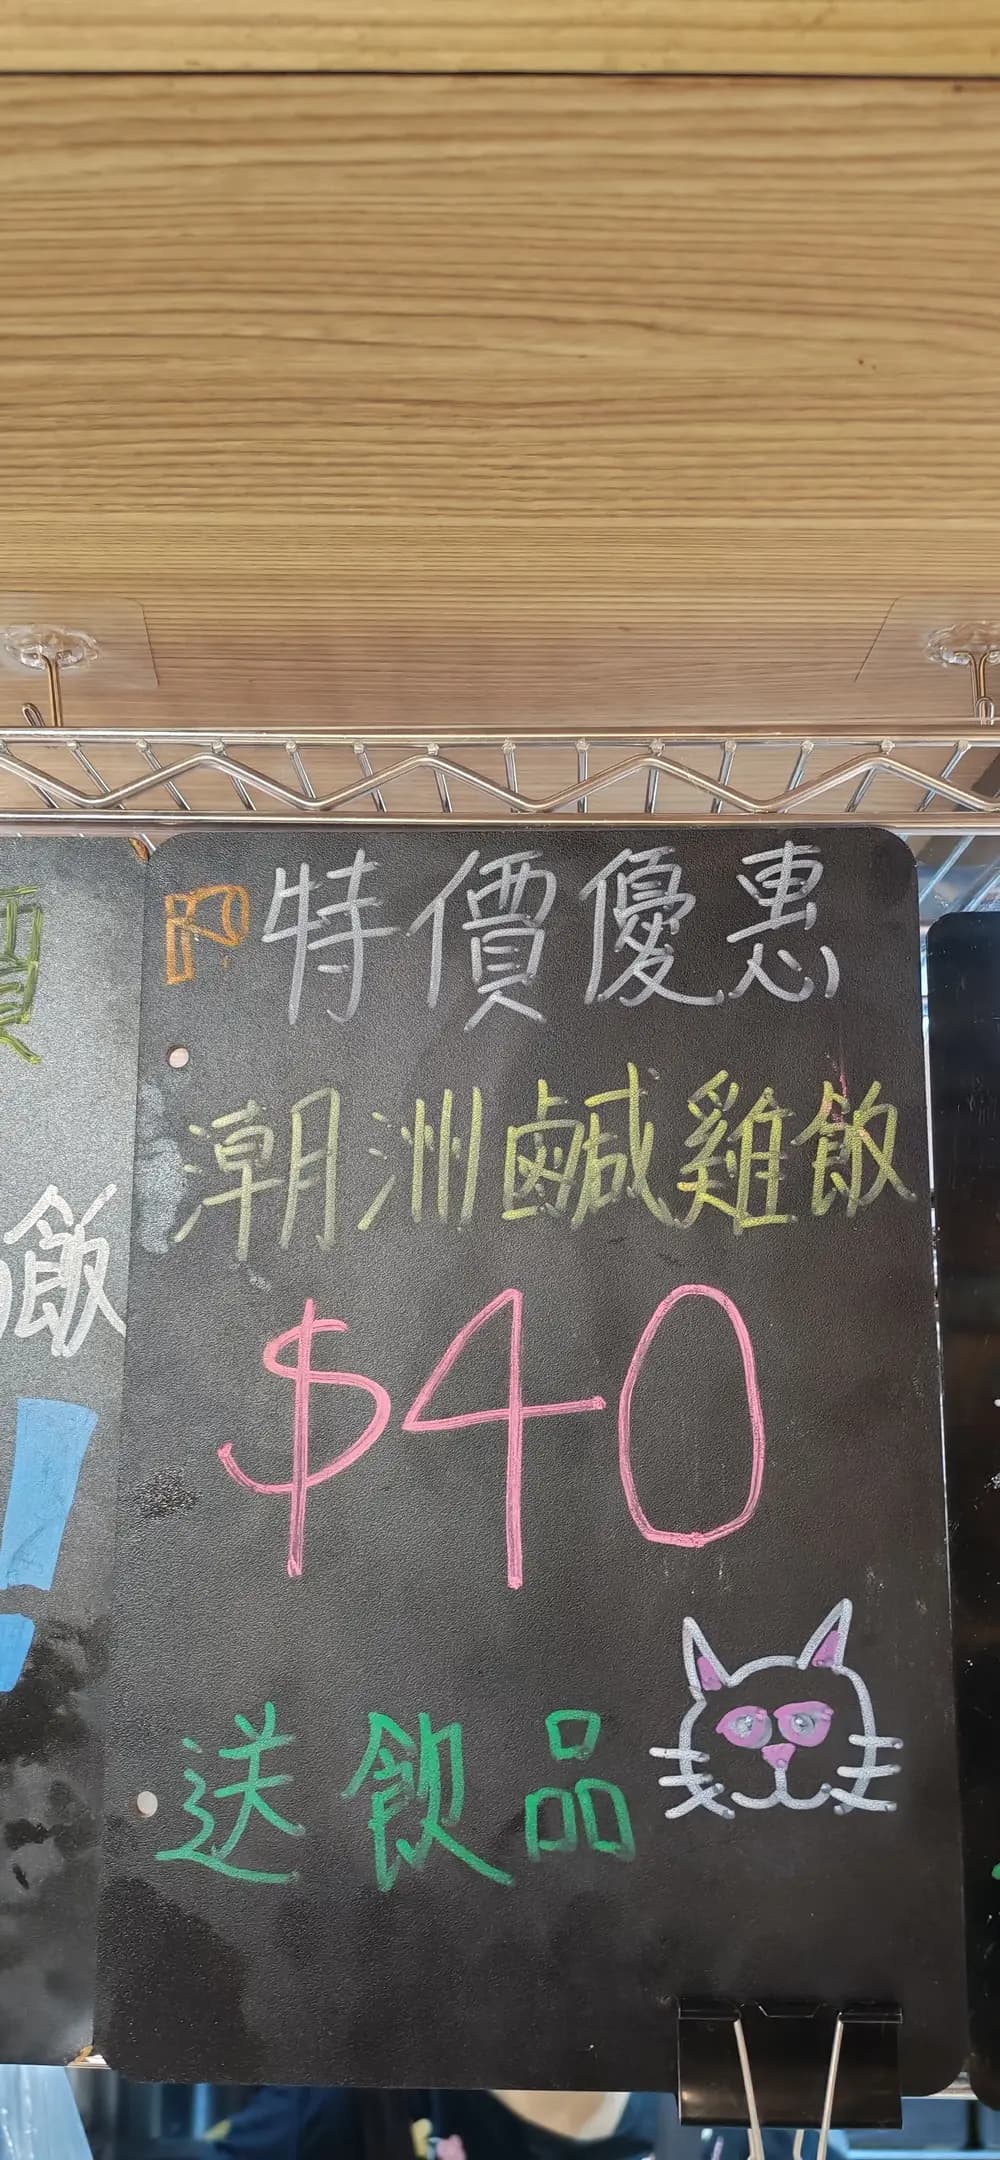 特價優惠
潮洲鹹雞飯
$40
送飲品
價
飯
!